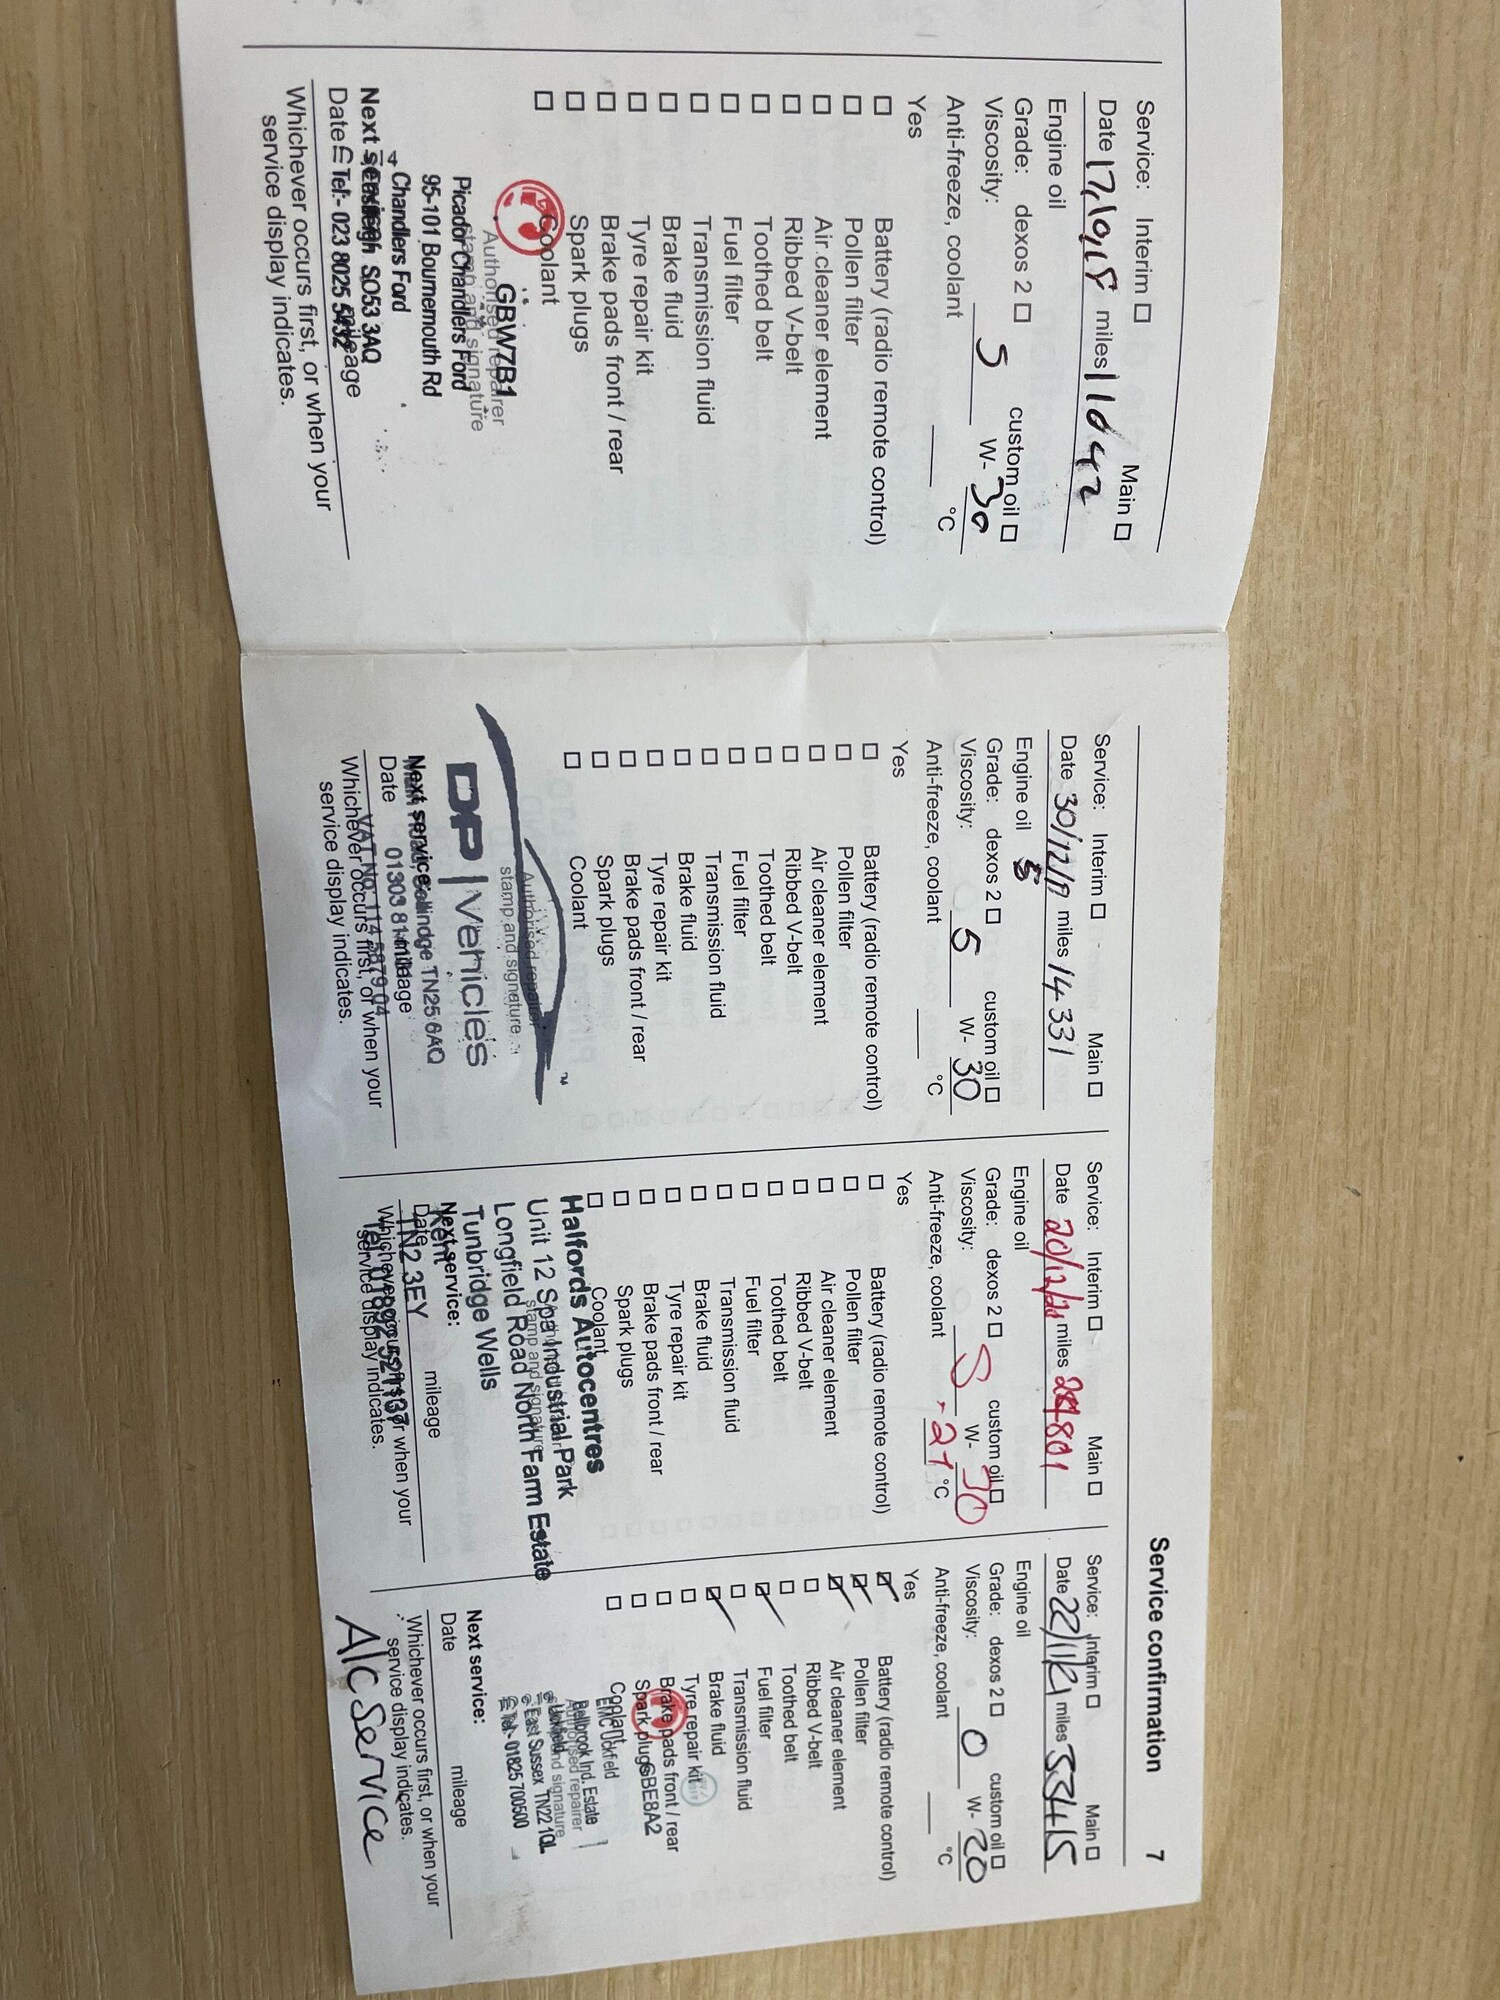 Service: Interim ☐ Main ☐
Date 17,10,18 miles 11042
Engine oil
Grade: dexos 2 ☐ custom oil ☐
Viscosity: 5 W- 30
Anti-freeze, coolant °C
Yes
☐ Battery (radio remote control)
☐ Pollen filter
☐ Air cleaner element
☐ Ribbed V-belt
☐ Toothed belt
☐ Fuel filter
☐ Transmission fluid
☐ Brake fluid
☐ Tyre repair kit
☐ Brake pads front / rear
☐ Spark plugs
☐ Coolant
GBW7B1
Authorised repairer
stamp and signature
Picador Chandlers Ford
95-101 Bournemouth Rd
Chandlers Ford
Next service:
SO53 3AQ
Date mileage
Tel:- 023 8025 5432
Whichever occurs first, or when your
service display indicates.
Service confirmation 7
Service: Interim ☐ Main ☐
Date 30/12/19 miles 14 331
Engine oil
Grade: dexos 2 ☐ custom oil ☐
Viscosity: 5 W- 30
Anti-freeze, coolant °C
Yes
☐ Battery (radio remote control)
☐ Pollen filter
☐ Air cleaner element
☐ Ribbed V-belt
☐ Toothed belt
☐ Fuel filter
☐ Transmission fluid
☐ Brake fluid
☐ Tyre repair kit
☐ Brake pads front / rear
☐ Spark plugs
☐ Coolant
Authorised repairer
stamp and signature
DP | Vehicles ™
Next service:
TN25 6AQ
Date mileage
01303 81
VAT No: 114 5879 04
Whichever occurs first, or when your
service display indicates.
Service: Interim ☐ Main ☐
Date 20/12/20 miles 801
Engine oil
Grade: dexos 2 ☐ custom oil ☐
Viscosity: 5 W- 30
Anti-freeze, coolant -21 °C
Yes
☐ Battery (radio remote control)
☐ Pollen filter
☐ Air cleaner element
☐ Ribbed V-belt
☐ Toothed belt
☐ Fuel filter
☐ Transmission fluid
☐ Brake fluid
☐ Tyre repair kit
☐ Brake pads front / rear
☐ Spark plugs
☐ Coolant
Halfords Autocentres
Unit 12 Spa Industrial Park
stamp and signature
Longfield Road North Farm Estate
Tunbridge Wells
Next service:
Kent
Date mileage
TN2 3EY
Whichever occurs first, or when your
Tel: 01892 521137
service display indicates.
Service: Interim ☐ Main ☐
Date 22/11/21 miles 33415
Engine oil
Grade: dexos 2 ☐ custom oil ☐
Viscosity: 0 W- 20
Anti-freeze, coolant °C
Yes
☑ Battery (radio remote control)
☑ Pollen filter
☑ Air cleaner element
☐ Ribbed V-belt
☐ Toothed belt
☑ Fuel filter
☐ Transmission fluid
☑ Brake fluid
☐ Tyre repair kit
☐ Brake pads front / rear
☐ Spark plugs
GBE8A2
☐ Coolant
EMC Uckfield
Bellbrook Ind. Estate
Authorised repairer
stamp and signature
Uckfield
East Sussex TN22 1QL
Tel:- 01825 700500
Next service:
Date mileage
Whichever occurs first, or when your
service display indicates.
A/c Service